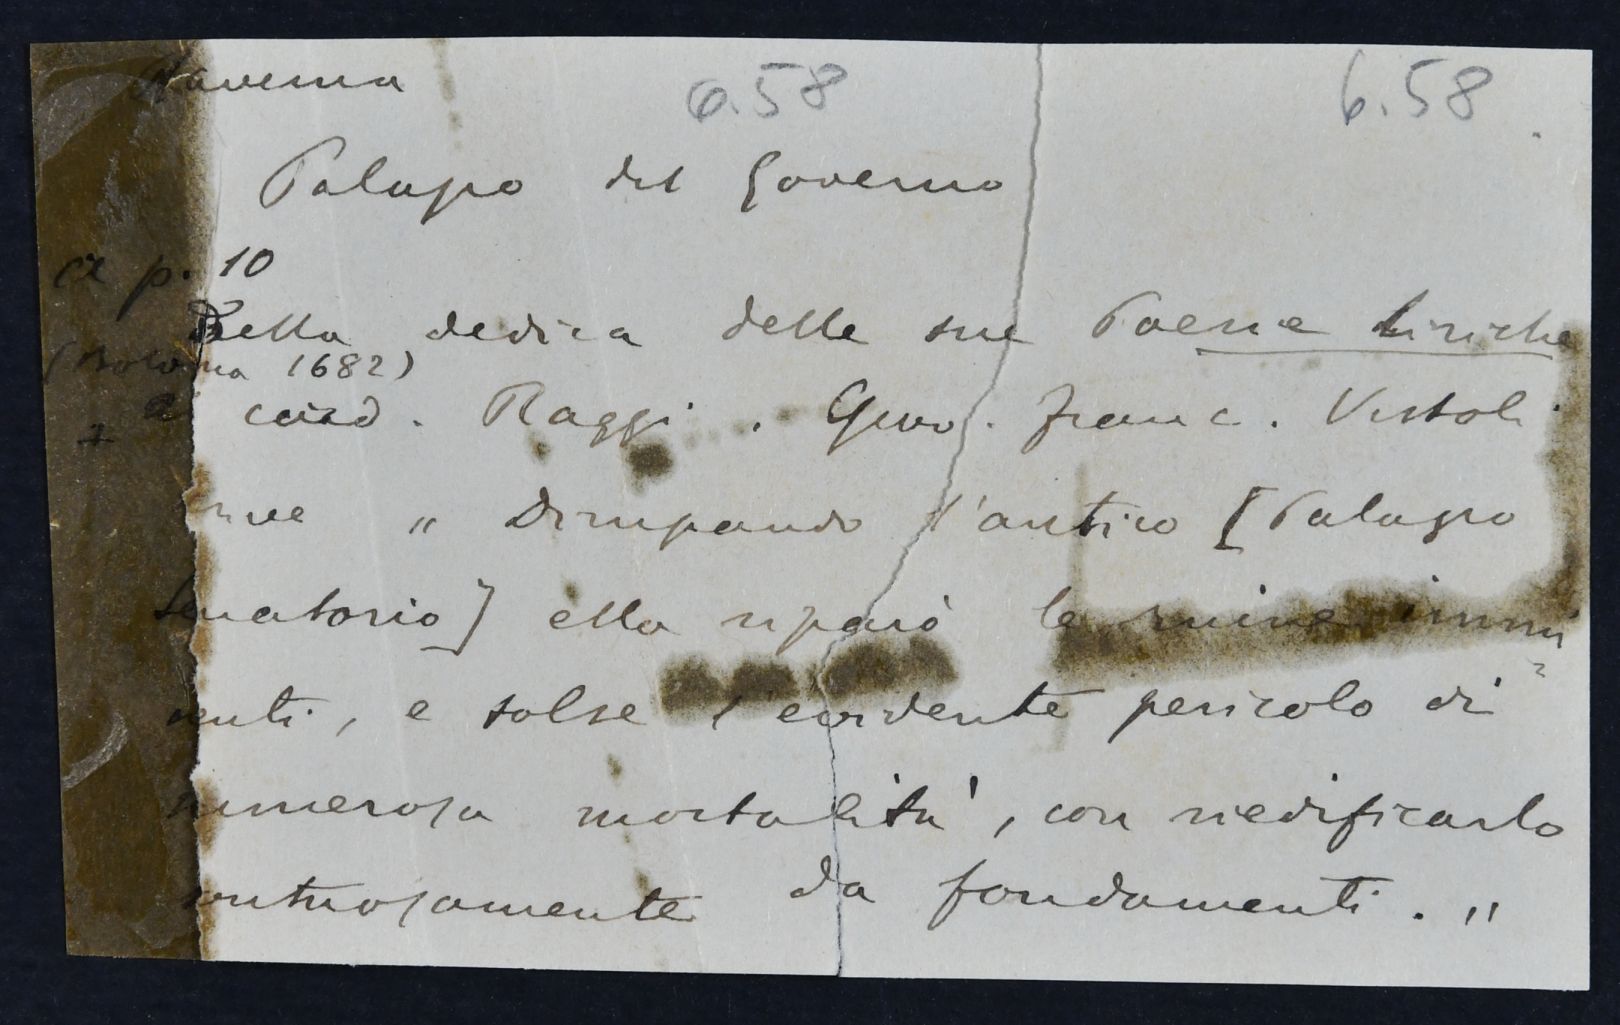 Ravenna 6.58 6.58
Palazzo del Governo
cx p. 10
Nella dedica delle sue Poesie Liriche
(Bologna 1682)
al card. Raggi. Giov. Franc. Vistoli
"Dirupando l'antico [Palazzo
Senatorio] ella riparò le ruine immi
nenti, e tolse l'evidente pericolo di
numerosa mortalità, con riedificarlo
sontuosamente da fondamenti."